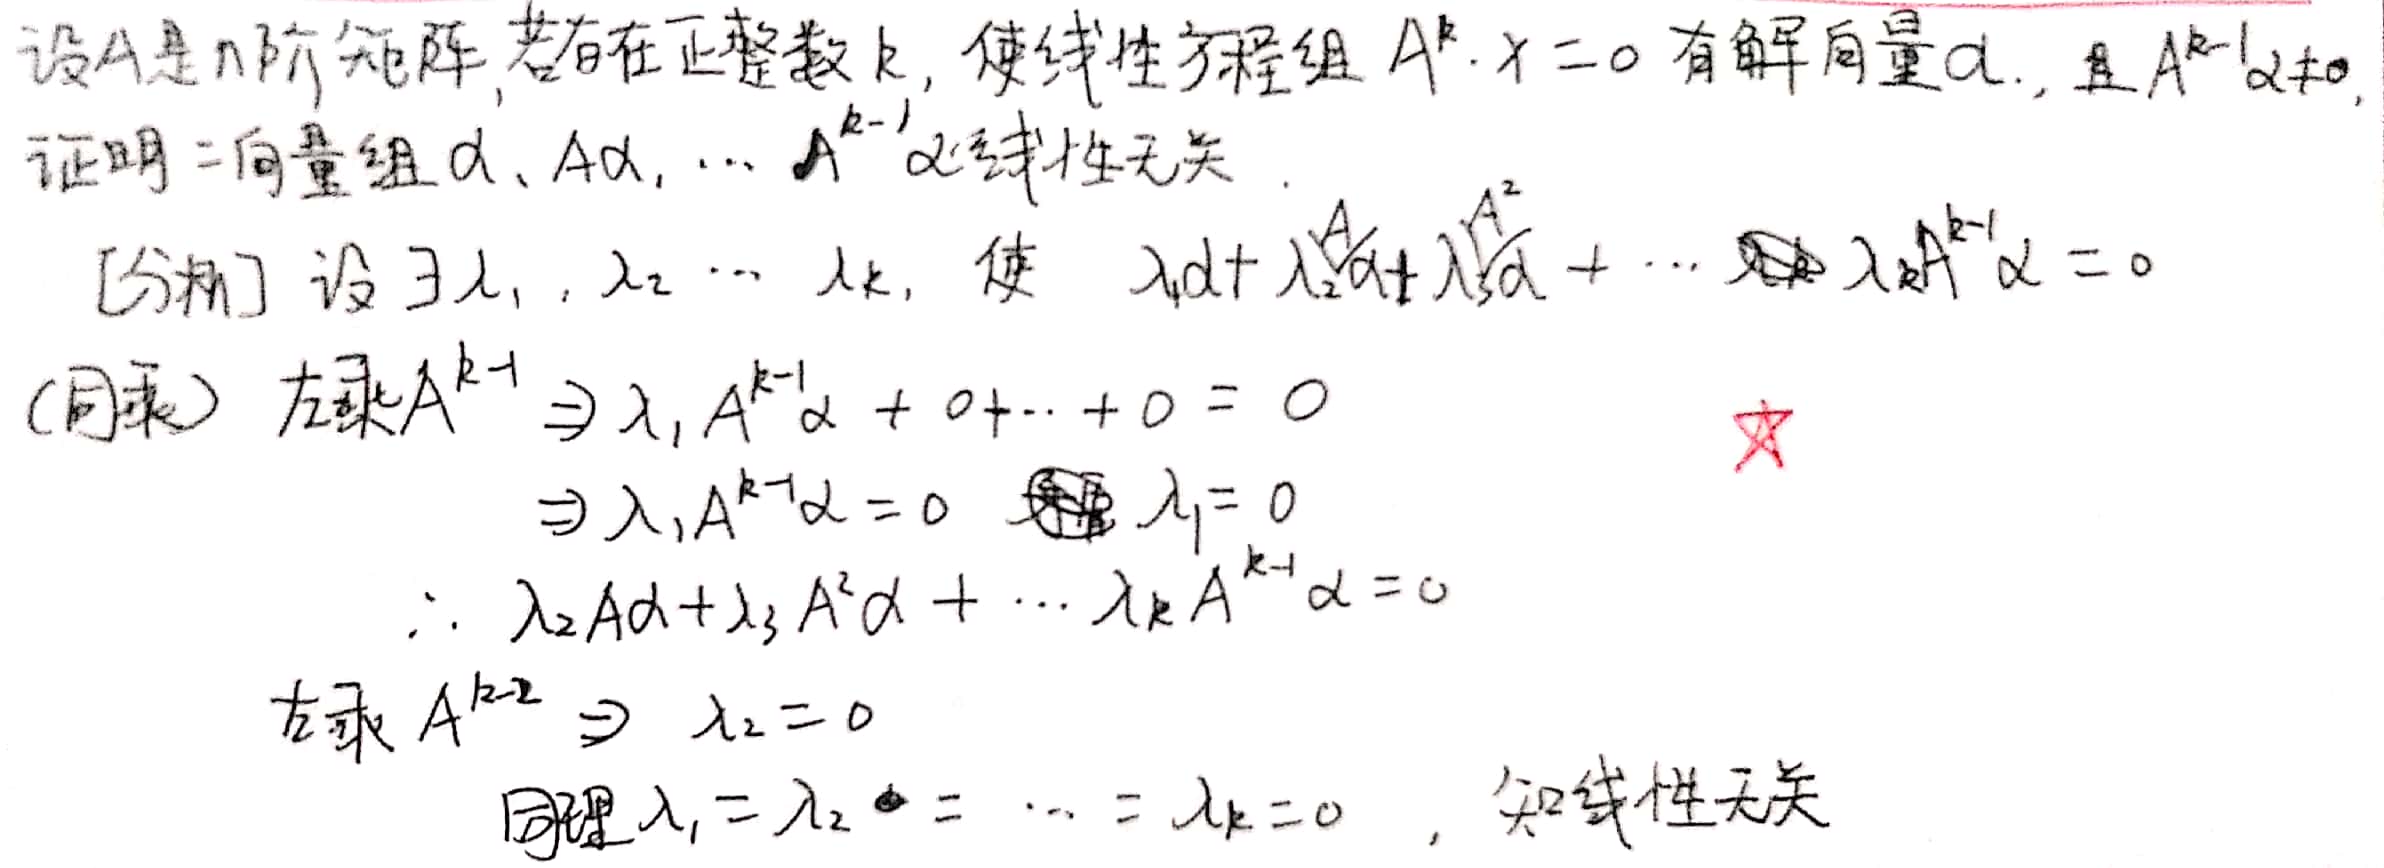 设A是n阶矩阵,若存在正整数k,使线性方程组 A^k·x=0 有解向量α.,且A^{k-1}α≠0,
证明:向量组α、Aα,…A^{k-1}α线性无关.
[分析] 设∃λ₁,λ₂…λk,使 λ₁α+λ₂Aα+λ₃A²α+…λkA^{k-1}α=0
(同乘) 左乘A^{k-1} ⇒ λ₁A^{k-1}α+0+…+0=0
⇒λ₁A^{k-1}α=0 λ₁=0
∴ λ₂Aα+λ₃A²α+…λkA^{k-1}α=0
左乘A^{k-2} ⇒ λ₂=0
同理λ₁=λ₂=…=λk=0,知线性无关